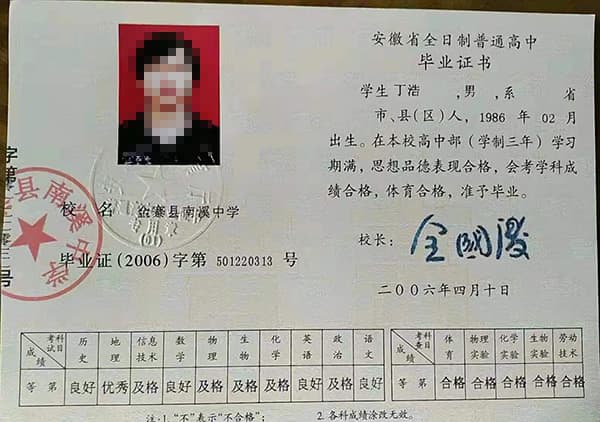 安徽省全日制普通高中
毕业证书
学生丁浩 ,男,系 省
市、县(区)人,1986年02月
出生。在本校高中部(学制三年)学习
期满,思想品德表现合格,会考学科成
绩合格,体育合格,准予毕业。
校长:
二〇〇六年四月十日
校 名 金寨县南溪中学
毕业证(2006)字第 501220313 号
县南溪中学
专用章
(01)
字第
号
考试科目 历史 地理 信息技术 数学 物理 生物 化学 英语 政治 语文
成绩
等第 良好 优秀 及格 良好 及格 及格 及格 良好 及格 良好
考查科目 体育 物理实验 化学实验 生物实验 劳动技术
成绩
等第 合格 合格 合格 合格 合格
注:1.“不”表示“不合格”; 2.各科成绩涂改无效。